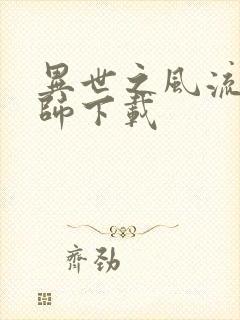 異世之風流
師下載
齊勁